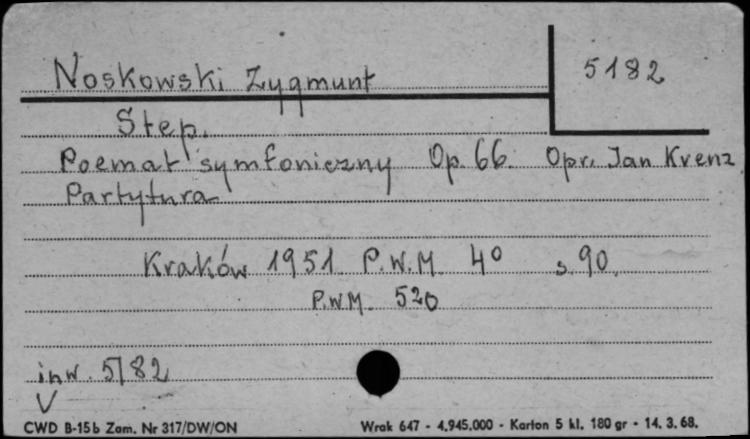 Noskowski Zygmunt
5182
Step.
Poemat symfoniczny Op. 66. Opr. Jan Krenz
Partytura
Kraków 1951. P.W.M. 4° s. 90.
P.W.M. 520
inw. 5182
CWD B-15b Zam. Nr 317/DW/ON Wrak 647 - 4.945.000 - Karton 5 kl. 180 gr - 14. 3. 68.